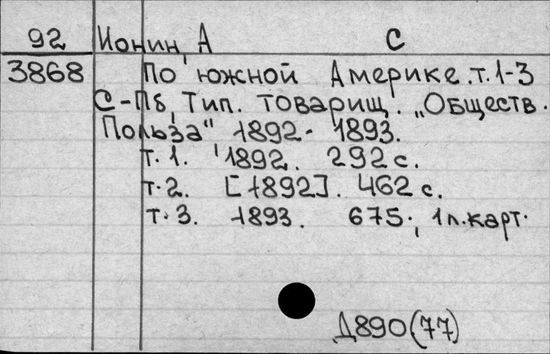 92 Ионин, А С
3868 По южной Америке. т. 1-3
С-Пб, Тип. товарищ. „Обществ.
Польза" 1892-1893.
т. 1. 1892. 292 с.
т. 2. [1892]. 462 с.
т. 3. 1893. 675., 1 л. карт.
Д890(77)